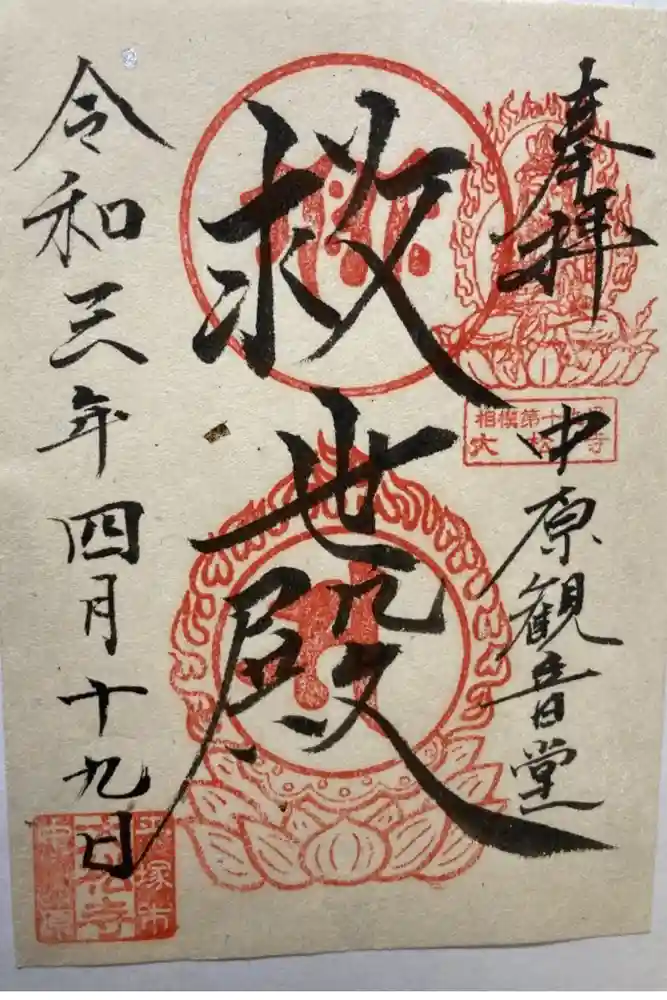 奉拝
中原観音堂
相模第十
救世殿
令和三年四月十九日
平塚市
中原